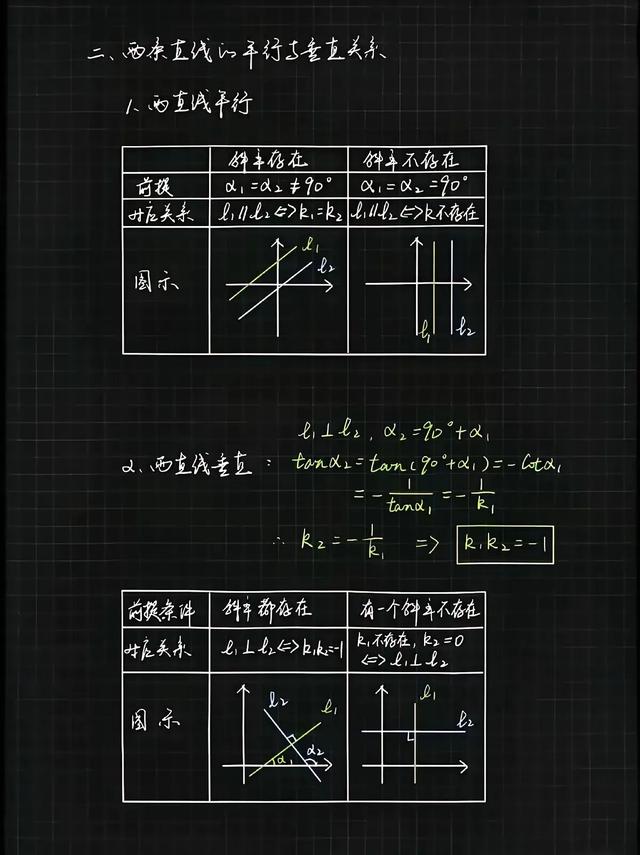 二、两条直线的平行与垂直关系
1、两直线平行
斜率存在 斜率不存在
前提 α₁=α₂≠90° α₁=α₂=90°
对应关系 l₁∥l₂⇔k₁=k₂ l₁∥l₂⇔k不存在
图示 l₁ l₂ l₁ l₂
l₁⊥l₂, α₂=90°+α₁
2、两直线垂直: tanα₂=tan(90°+α₁)=-cotα₁
=-1/tanα₁=-1/k₁
∴ k₂=-1/k₁ => k₁k₂=-1
前提条件 斜率都存在 有一个斜率不存在
对应关系 l₁⊥l₂⇔k₁k₂=-1 k₁不存在, k₂=0
⇔l₁⊥l₂
图示 l₂ l₁ α₁ α₂ l₁ l₂